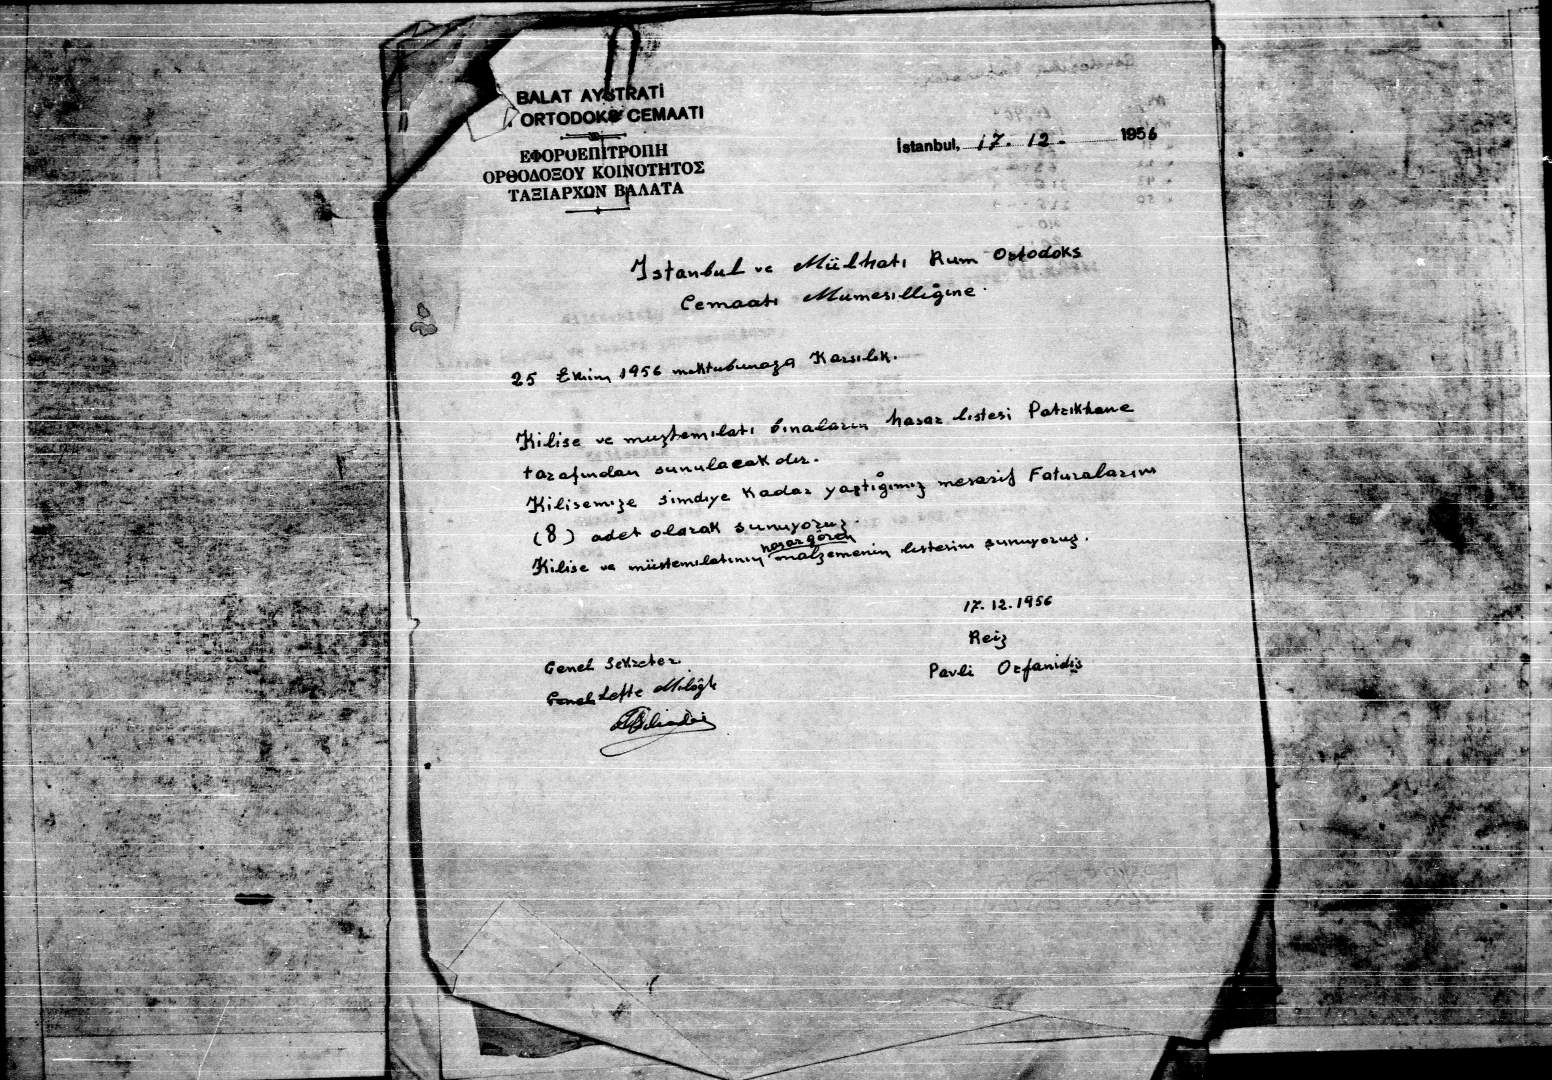 BALAT AYSTRATİ
ORTODOKS CEMAATI
ΕΦΟΡΟΕΠΙΤΡΟΠΗ
ΟΡΘΟΔΟΞΟΥ ΚΟΙΝΟΤΗΤΟΣ
ΤΑΞΙΑΡΧΩΝ ΒΑΛΑΤΑ
İstanbul, 17. 12. 1956
Istanbul ve Mülhatı Rum Ortodoks
Cemaatı Mumesılliğine
25 Ekim 1956 mektubunaza Karsılık.
Kilise ve muştemılatı bınaların hasar lıstesi Patrikhane
tarafından sunulacakdır.
Kilisemıze simdıye kadar yaptığımız mesarif Faturalarını
(8) adet olarak sunuyoruz.
Kilise ve müstemılatının hasar gören malzemenin listesini sunuyoruz.
17. 12. 1956
Reiz
Pavli Orfanidis
Genel Sekreter
Genel Lefte